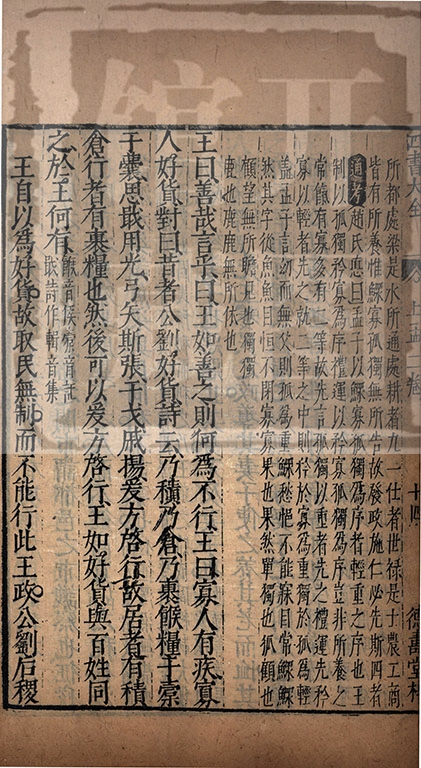 四書大全 上孟二卷 十四 德壽堂梓
所都處梁是水所通處耕者九一仕者世禄是士農工商
皆有所養惟鰥寡孤獨無所告故發政施仁必先斯四者
通考 趙氏悳曰孟子以鰥寡孤獨為序者輕重之序也王
制以孤獨矜寡為序禮運以矜寡孤獨為序豈非所養之
常餼有寡多有二等故先言孤獨以重者先之禮運先矜
寡以輕者先之就二等之中則矜於寡為重獨於孤為輕
蓋孟子言幼而無父則孤為重鰥愁悒不能寐目常鰥鰥
然其字從魚魚目恒不閉寡寡果也果然單獨也孤顧也
顧望無所瞻見也獨獨
鹿也鹿鹿無所依也
王曰善哉言乎曰王如善之則何為不行王曰寡人有疾寡
人好貨對曰昔者公劉好貨詩云乃積乃倉乃裹餱糧于橐
于囊思戢用光弓矢斯張干戈戚揚爰方啓行故居者有積
倉行者有裹糧也然後可以爰方啓行王如好貨與百姓同
之於王何有 餱音侯橐音託
戢詩作輯音集
王自以為好貨故取民無制而不能行此王政公劉后稷